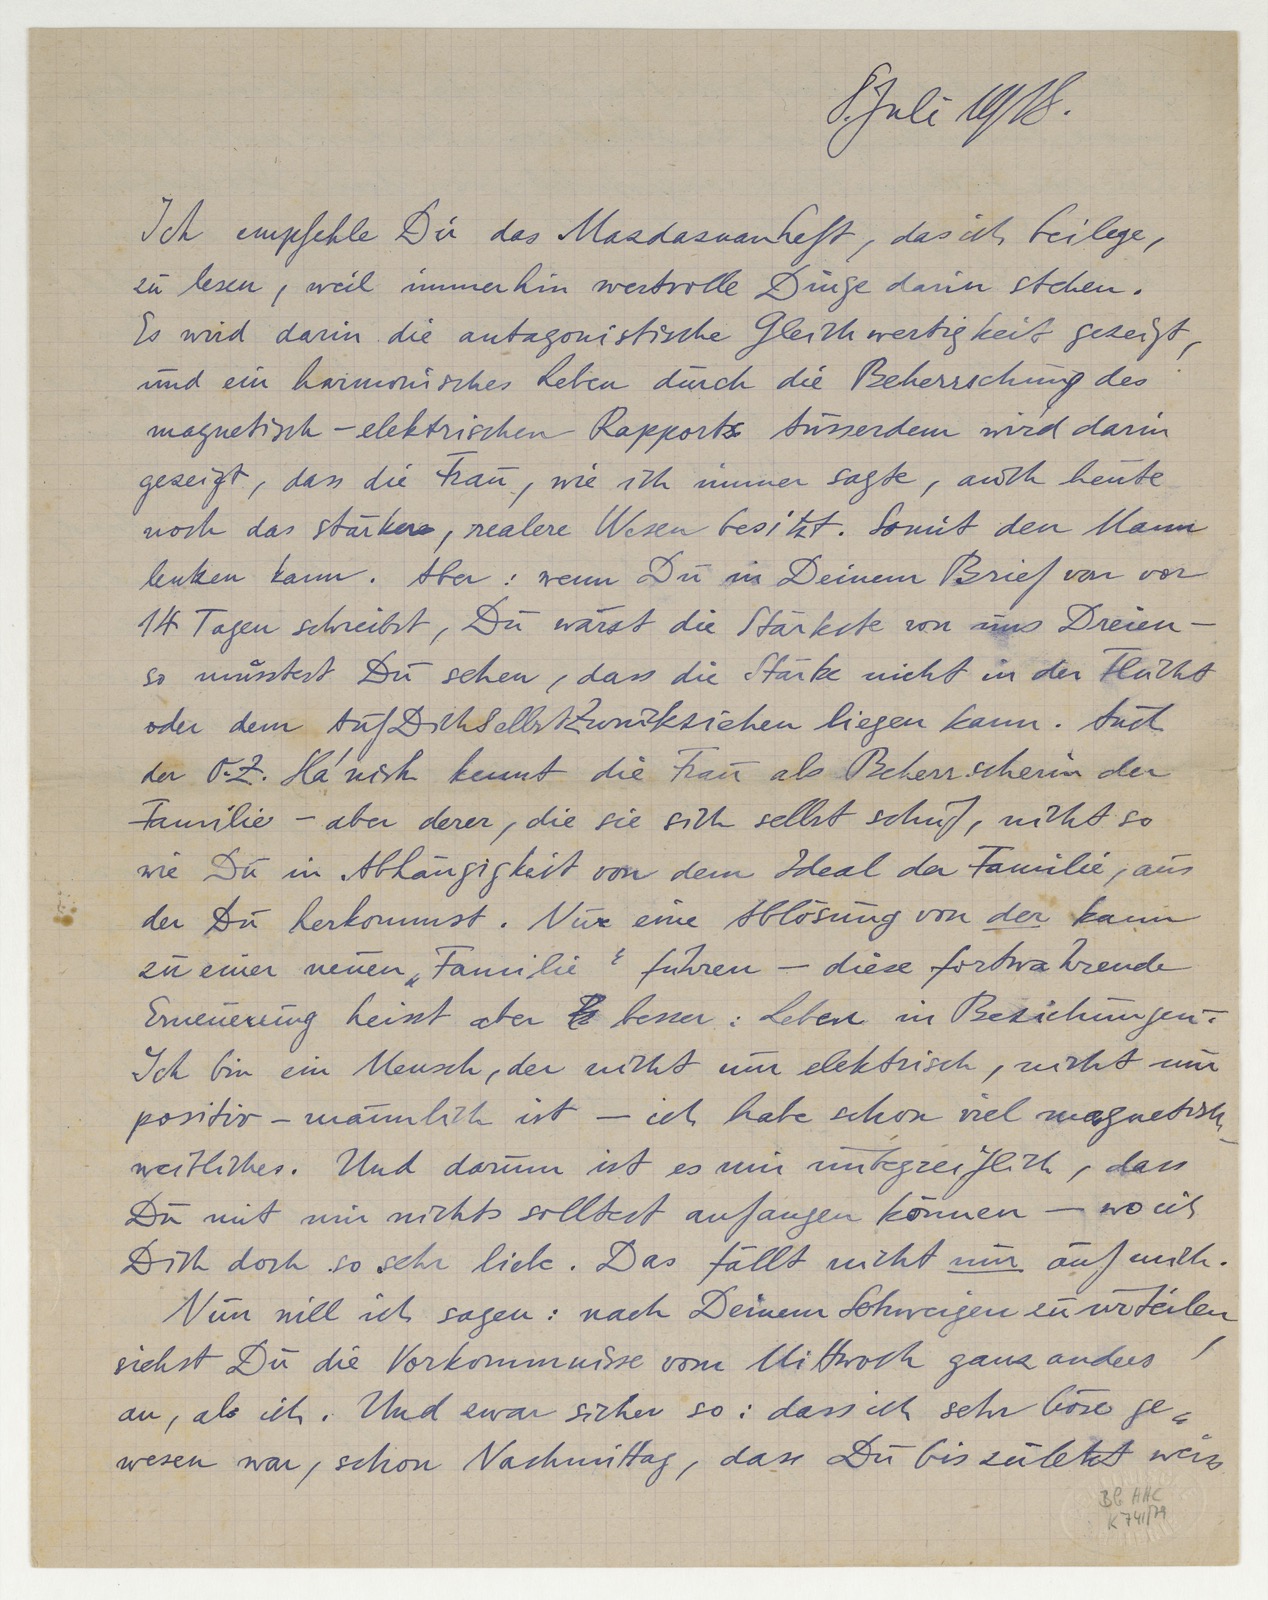 8. Juli 1918.
Ich empfehle Dir das Mazdaznanheft, das ich beilege,
zu lesen, weil immerhin wertvolle Dinge darin stehen.
Es wird darin die antagonistische Gleichwertigkeit gezeigt,
und ein harmonisches Leben durch die Beherrschung des
magnetisch-elektrischen Rapports Ausserdem wird darin
gezeigt, dass die Frau, wie ich immer sagte, auch heute
noch das stärkere, realere Wesen besitzt. Somit den Mann
lenken kann. Aber: wenn Du in Deinem Brief von vor
14 Tagen schreibst, Du wärst die Stärkste von uns Dreien —
so müsstest Du sehen, dass die Stärke nicht in der Flucht
oder dem AufDichSelbstZurückziehen liegen kann. Auch
der O.Z. Há'nish kennt die Frau als Beherrscherin der
Familie — aber derer, die sie sich selbst schuf, nicht so
wie Du in Abhängigkeit von dem Ideal der Familie, aus
der Du herkommst. Nur eine Ablösung von der kann
zu einer neuen „Familie“ führen — diese fortwährende
Erneuerung heisst aber besser: Leben in Beziehungen.
Ich bin ein Mensch, der nicht nur elektrisch, nicht nur
positiv-männlich ist — ich habe schon viel magnetisch-
weibliches. Und darum ist es mir unbegreiflich, dass
Du mit mir nichts solltest anfangen können — wo ich
Dich doch so sehr liebe. Das fällt nicht nur auf mich.
Nun will ich sagen: nach Deinem Schweigen zu urteilen
siehst Du die Vorkommnisse vom Mittwoch ganz anders
an, als ich. Und zwar sicher so: dass ich sehr böse ge-
wesen war, schon Nachmittag, dass Du bis zuletzt weiss
BG HHC
K 741/79